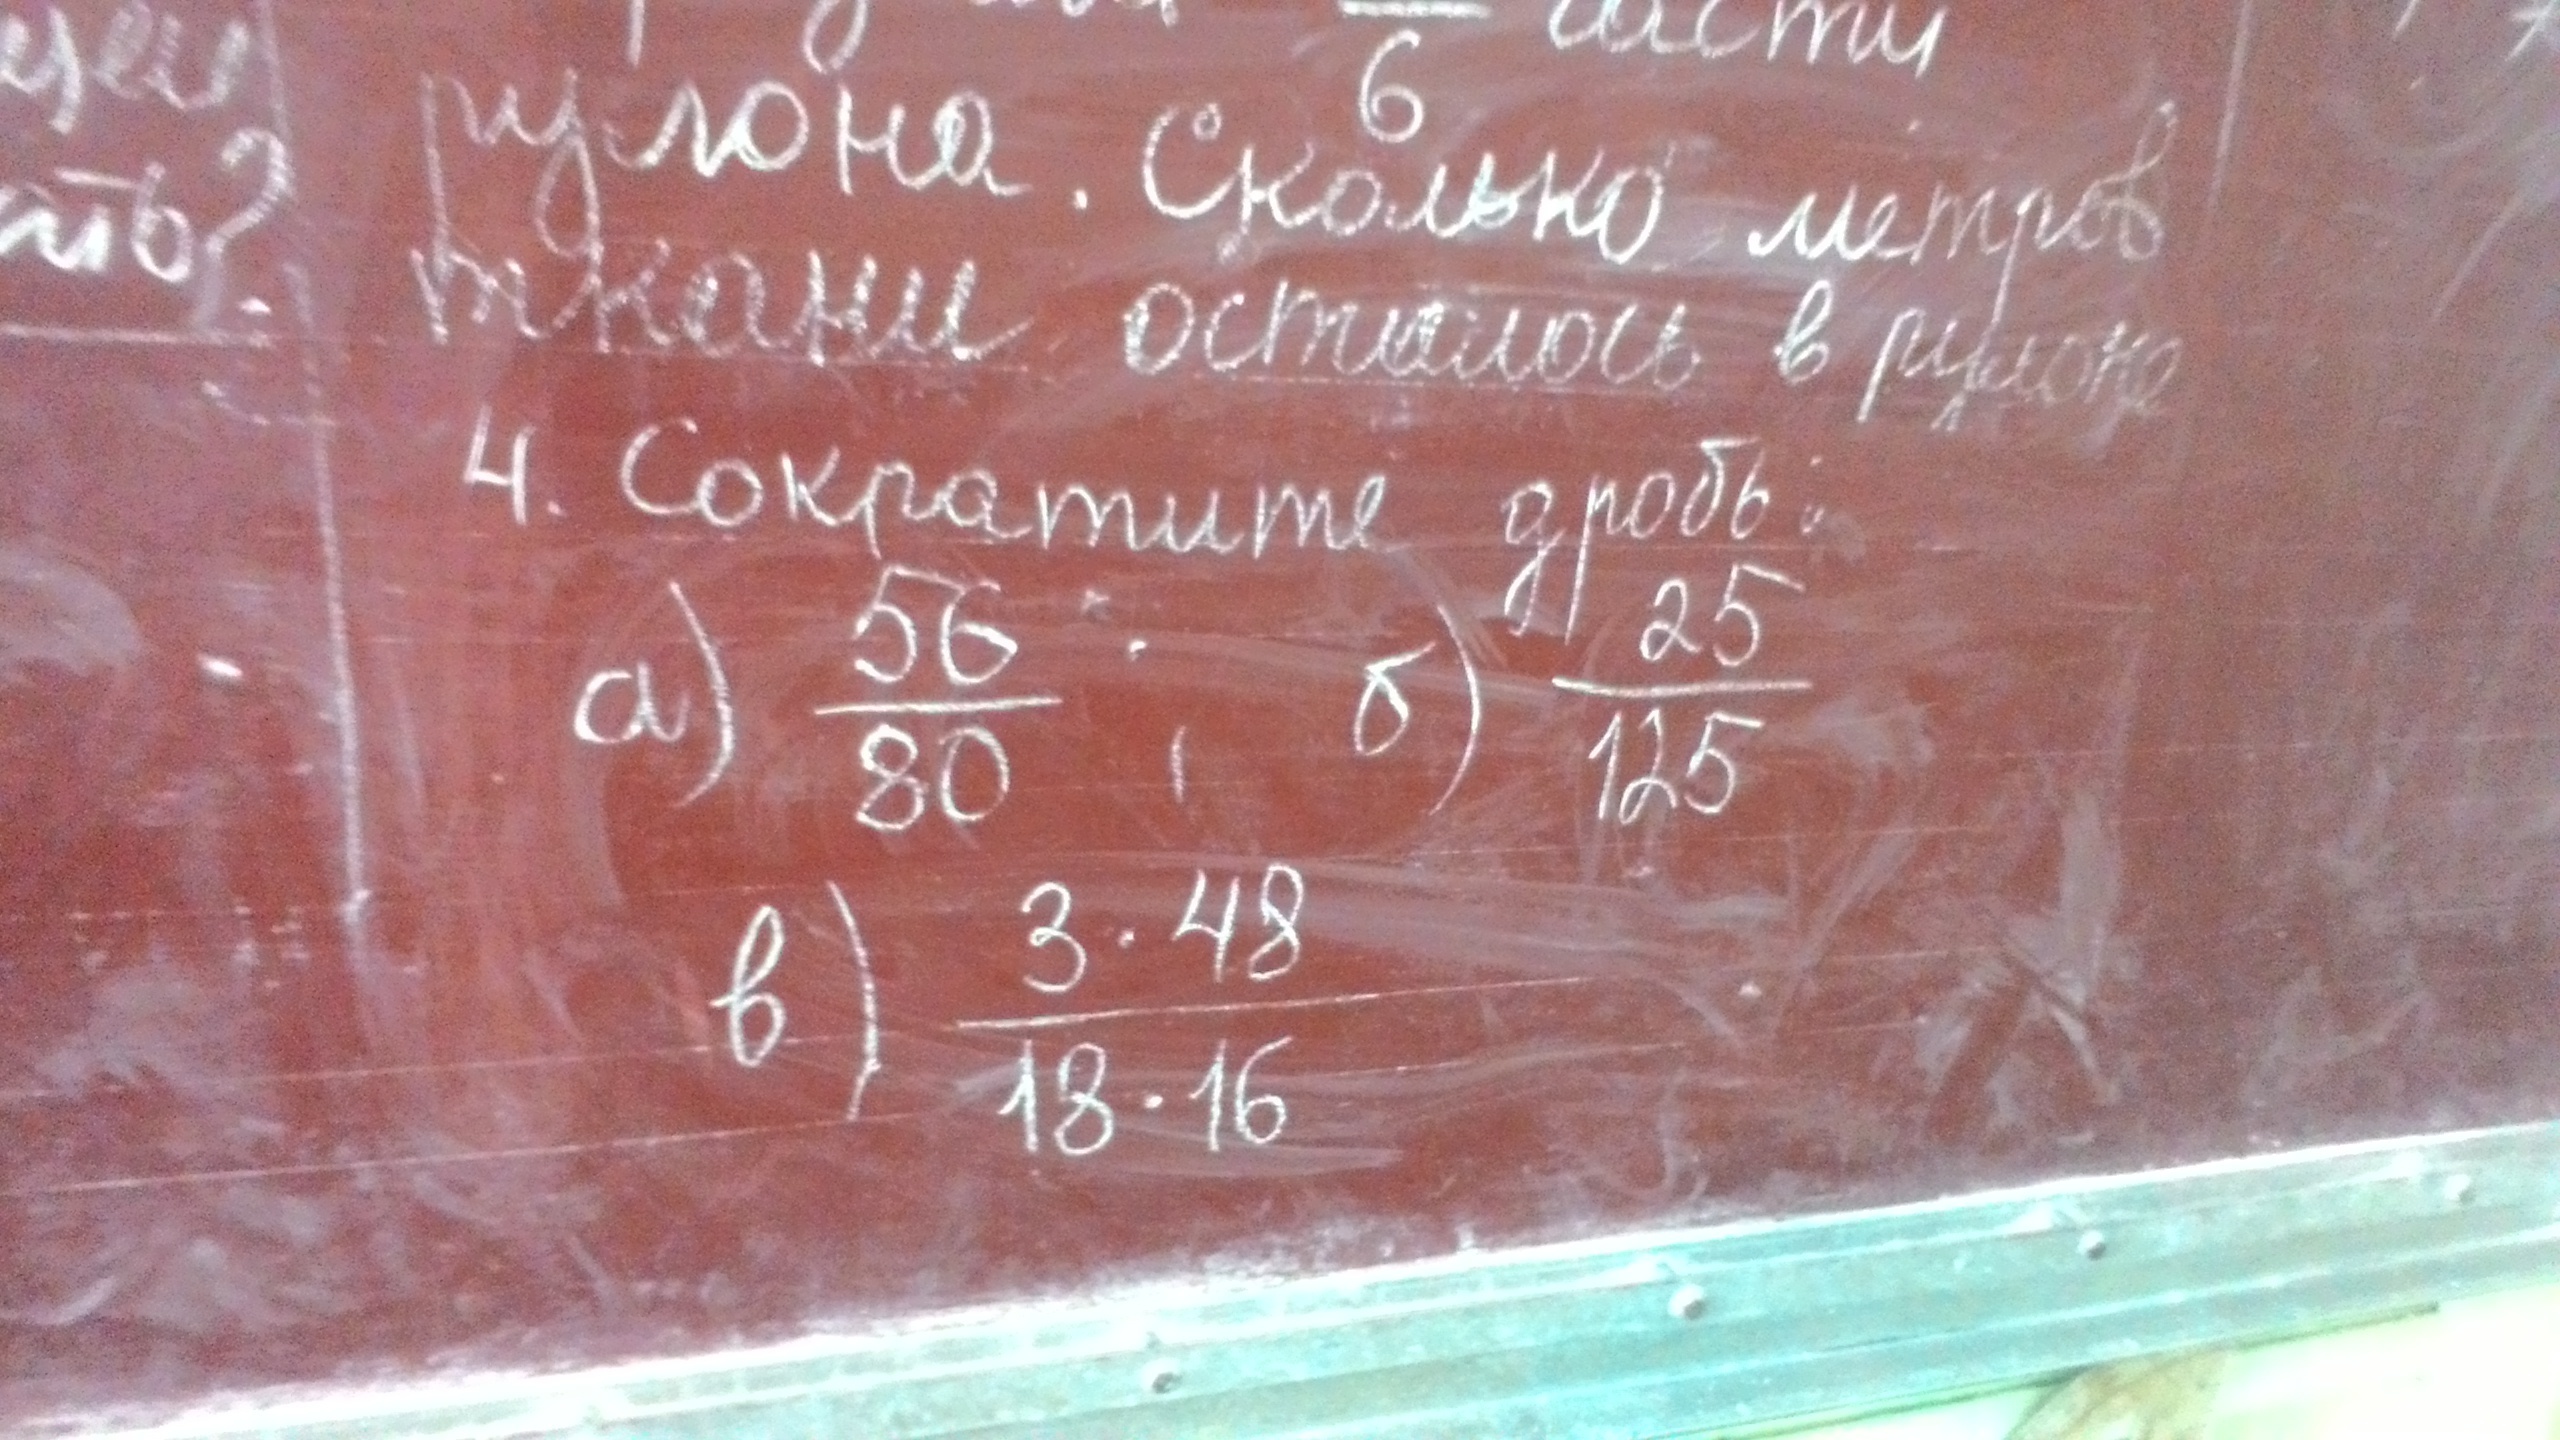 6 части
рулона. Сколько метров
ткани осталось в рулоне
4. Сократите дробь:
а) 56/80 ; б) 25/125
в) 3·48/18·16